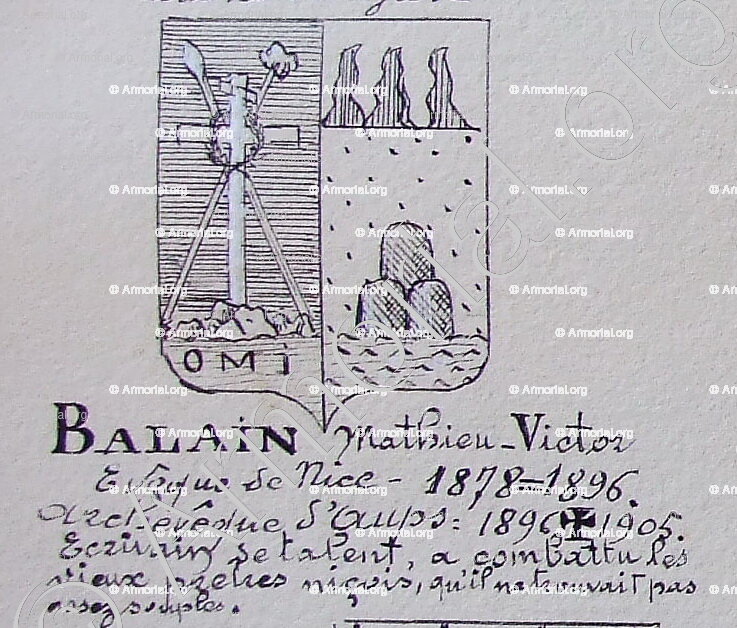 OMI
BALAIN Mathieu-Victor
Evêque de Nice - 1878-1896.
Archevêque d'Aups: 1896 ✠ 1905.
Ecrivain de talent, a combattu les
vieux prêtres niçois, qu'il ne trouvait pas
assez souples.
© Armorial.org